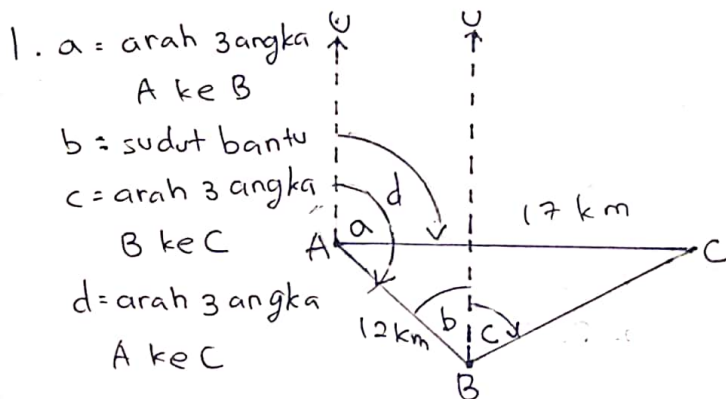 1. a = arah 3 angka
A ke B
b = sudut bantu
c = arah 3 angka
B ke C
d = arah 3 angka
A ke C
U
U
d
a
17 km
A
C
12 km
b
c
B